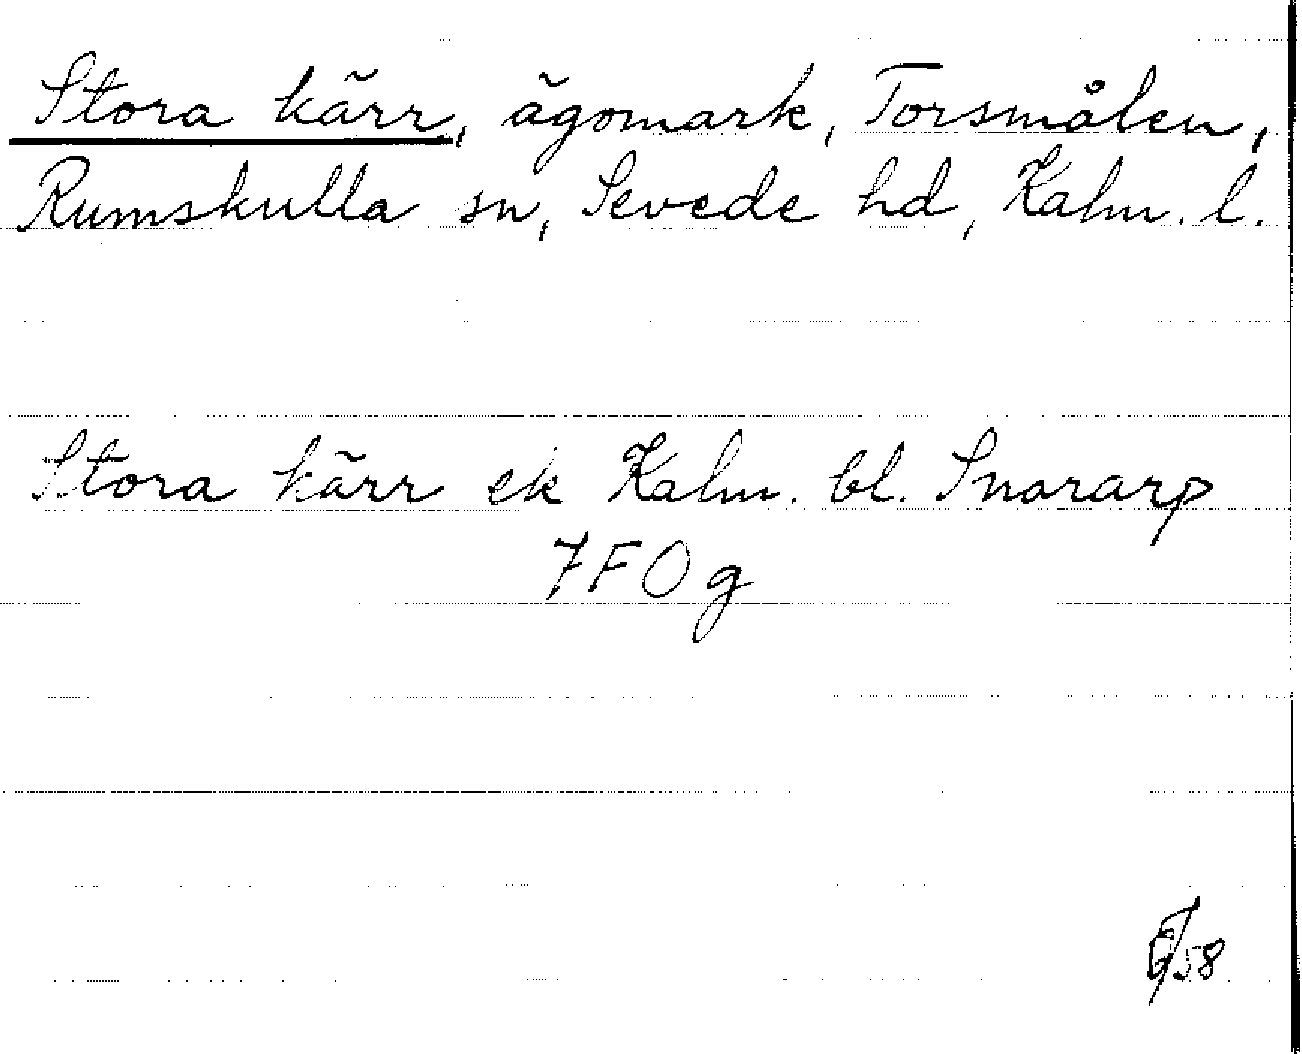 Stora kärr, ägomark, Torsmålen,
Rumskulla sn, Sevede hd, Kalm. l.
Stora kärr ek Kalm. bl. Snararp
7 F O g
58